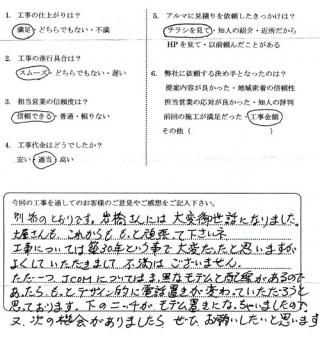 1. 工事の仕上がりは?
満足・どちらでもない・不満
2. 工事の進行具合は?
スムーズ・どちらでもない・遅い
3. 担当営業の信頼度は?
信頼できる・普通・頼りない
4. 工事代金はどうでしたか?
安い・適当・高い
5. アルマに見積りを依頼したきっかけは?
チラシを見て・知人の紹介・近所だから
HPを見て・以前頼んだことがある
6. 弊社に依頼する決め手となったのは?
提案内容が良かった・地域密着の信頼性
担当営業の応対が良かった・知人の評判
前回の施工が満足だった・工事金額
その他( )
今回の工事を通してのお客様のご意見やご感想をご記入下さい。
別紙のとおりです。岩橋さんには大変御世話になりました。
土屋さんも、これからももっと頑張って下さいネ
工事については築30年という事で大変だったと思いますが
よくしていただきまして不満はございません。
ただ一つJ:COMについてはまっ黒なモデムと配線があるので
あったら、もっとデザイン的に電話置きが変わっていただろうと
思っております。下のニッチがモデム置きになっちゃいましたので
又、次の機会がありましたらぜひお願いしたいと思います